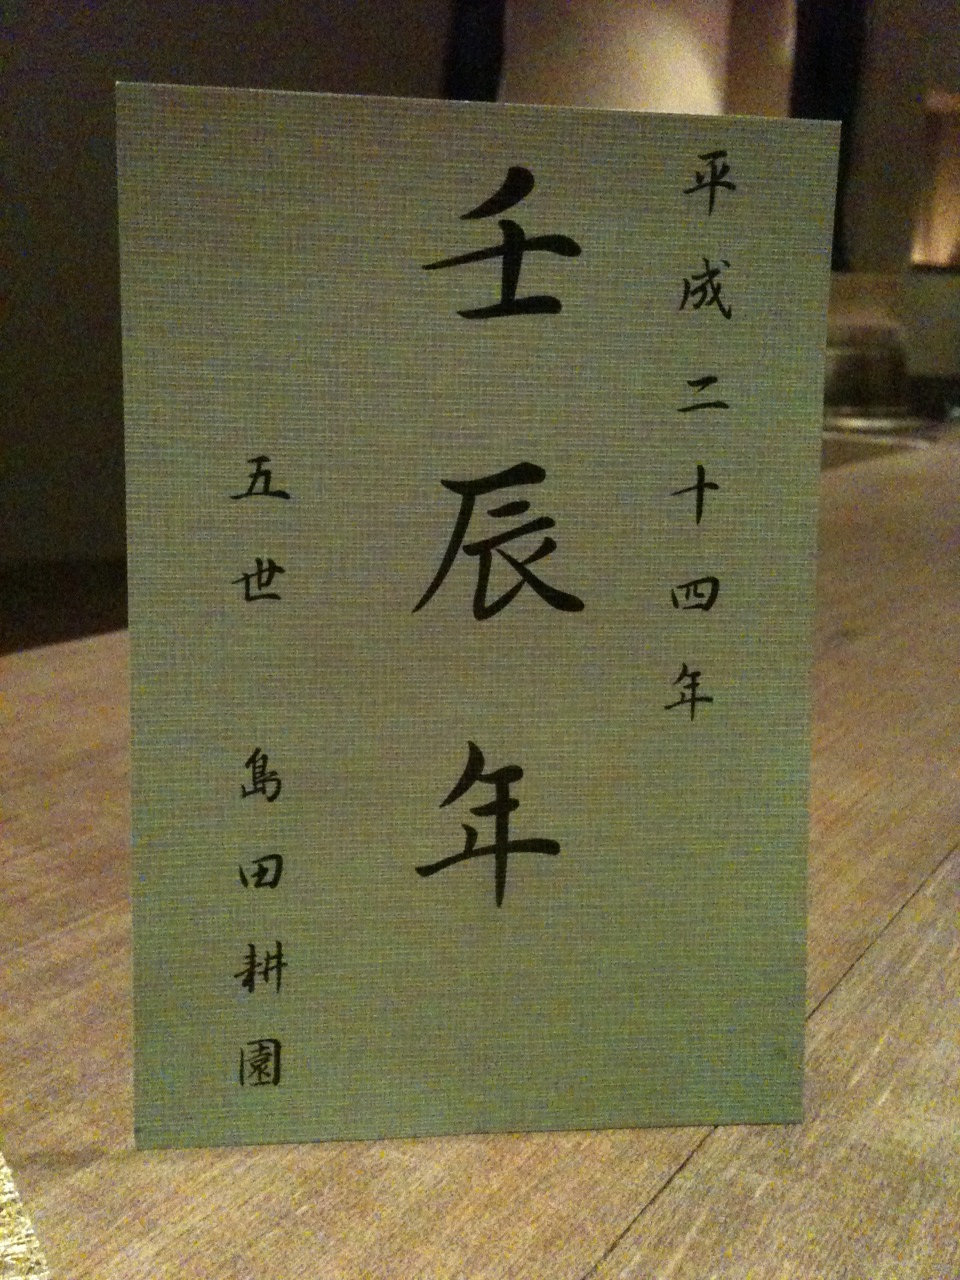 平成二十四年
壬辰年
五世 島田耕園